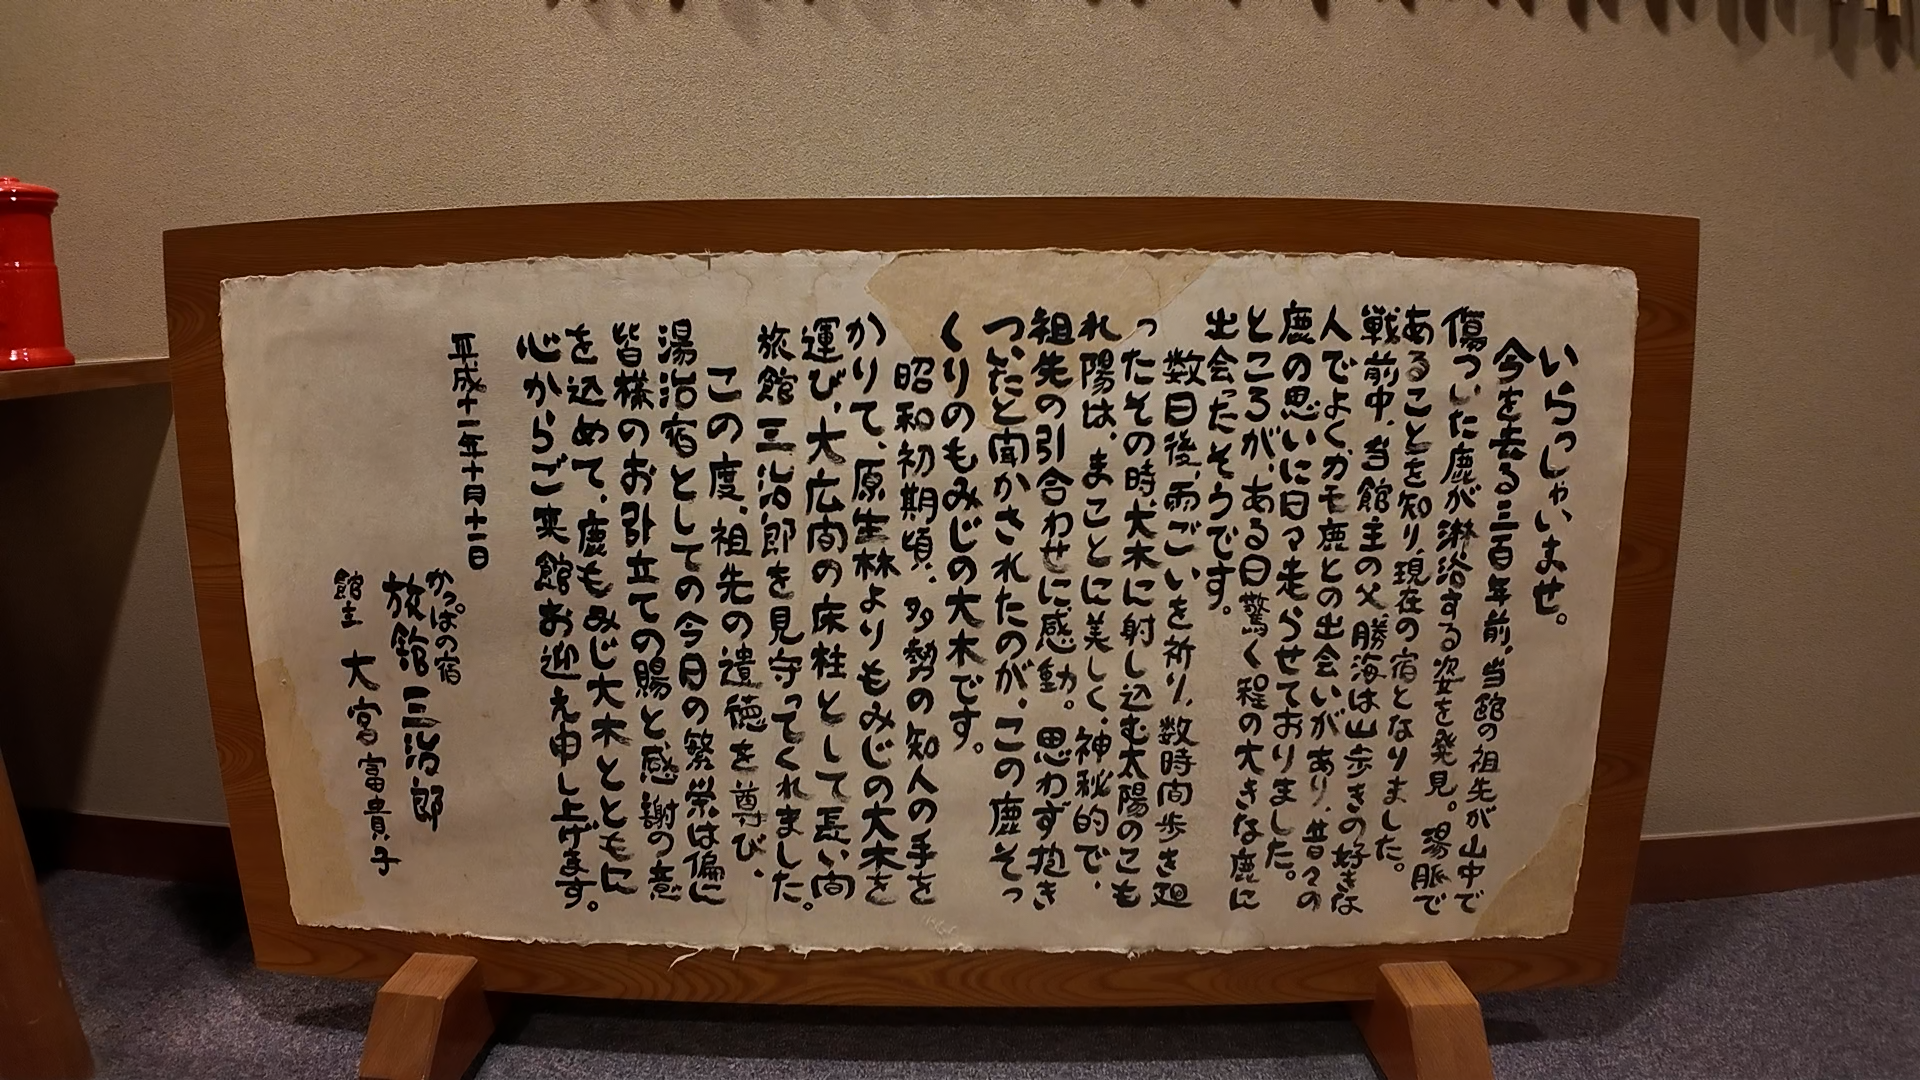 いらっしゃいませ。
今を去る三百年前、当館の祖先が山中で
傷ついた鹿が淋浴する姿を発見。湯脈で
あることを知り、現在の宿となりました。
戦前中、当館主の父、勝海は山歩きの好きな
人でよくカモ鹿との出会いがあり、昔々の
鹿の思いに日々走らせておりました。
ところが、ある日驚く程の大きな鹿に
出会ったそうです。
数日後、雨ごいを祈り、数時間歩き廻
ったその時、大木に射し込む太陽のこも
れ陽は、まことに美しく、神秘的で、
祖先の引合わせに感動。思わず抱き
ついたと聞かされたのが、この鹿そっ
くりのもみじの大木です。
昭和初期頃、多勢の知人の手を
かりて、原生林よりもみじの大木を
運び、大広間の床柱として長い間
旅館三治郎を見守ってくれました。
この度、祖先の遺徳を尊び、
湯治宿としての今日の繁栄は偏に
皆様のお引立ての賜と感謝の意
を込めて、鹿もみじ大木とともに
心からご来館お迎え申し上げます。
平成十一年十月十二日
かっぱの宿
旅館三治郎
館主 大宮富貴子